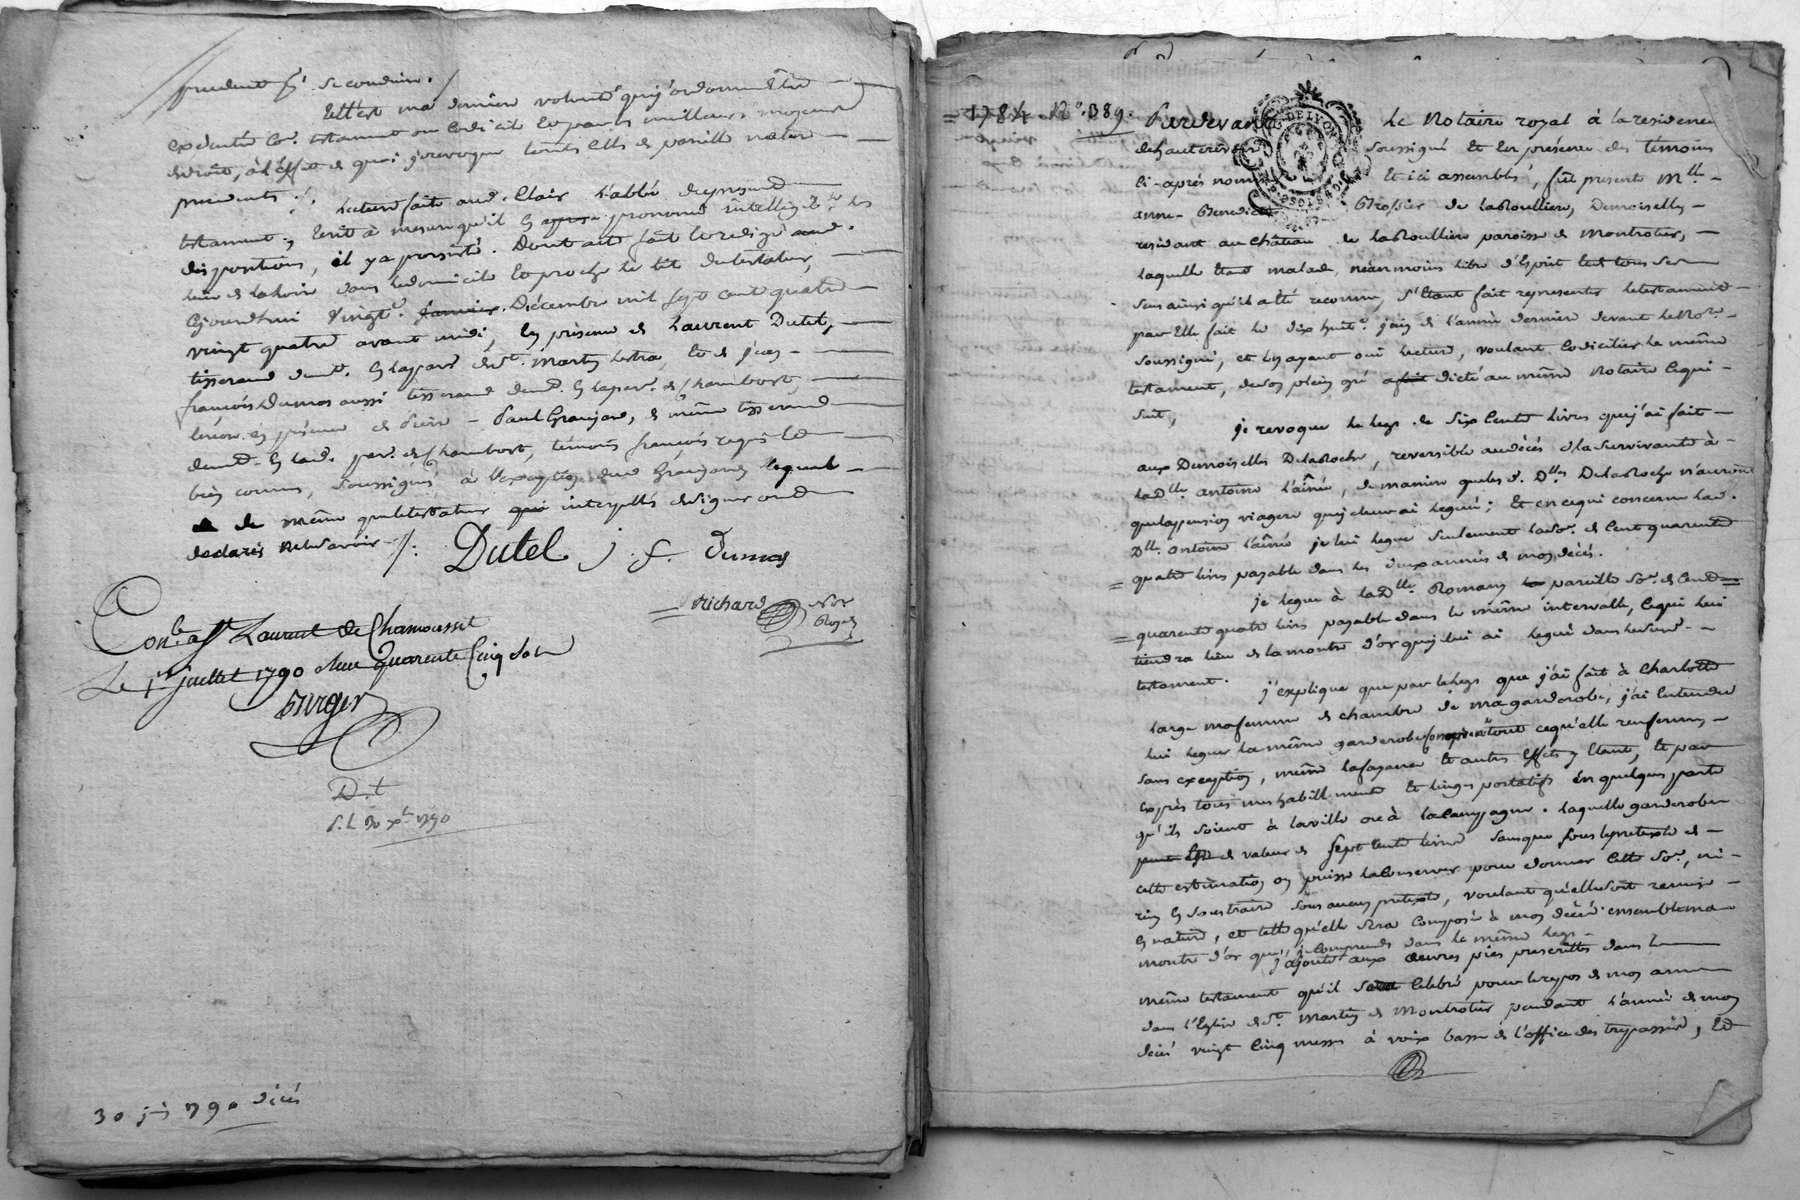 prudent se conduire.
Telle est ma derniere volonté que j'ordonne être
executée par testament ou Codicile et par les meilleurs moyens
de droit, à l'effet de quoi je revoque touts de pareille nature
precedents
Lecture faite aud. Clair l'abbé du present
testament, écrit à mesure qu'il en a prononcé intelligib.t les
dispositions, il y a persisté. Dont acte fait et redigé
lieu de dans le domicile et proche le lit du testateur,
Cejourdhui vingt janvier Décembre mil sept cent quatre
vingt quatre avant midi, en présence de Laurent Dutel,
tisserand dem.t en la par. de st. Martin lestra, et de jean
françois Dumas aussi tisserand dem.t en la par. de Chambost,
en présence de Pierre Paul Granjard, de même tisserand
dem.t en lad. par. de Chambost, témoins françois requis et
bien connus, soussignés, à l'exception dud Granjard lequel
de même que le testateur qui interpellés de signer ont
declaré ne le savoir
Dutel j. f. Dumas
Richard No.re Royal
Con.lé à St Laurent de Chamousset
Le 1er juillet 1790 Reçu quarente Cinq sols
Burger
D.t
S.L 30 x.bre 1790
30 1790 décés
1784 N.° 389. Pardevant Le Notaire royal à la residence
de hauterivoire soussigné et en présence des témoins
ci-après nommés et ici assemblés, fût presente M.lle
anne Benedicte Brossier de la Roulliere, Demoiselle
residant au Château de la Roulliere paroisse de Montrotier,
laquelle étant malade, néanmoins libre d'Esprit et de tous ses
sens ainsi qu'il a été reconnu, s'étant fait representer le testament
par Elle fait le dix huit de l'année derniere devant le No.re
soussigné, et en ayant oui lecture, voulant Codicilier le même
testament, de son plein gré a fait dicté au même Notaire ce qui
suit,
je revoque le legs de six Cents livres que j'ai fait
aux Demoiselles Delaroche, reversible au décés de la survivante à
la D.lle antoine l'aînée, de maniere que les d. D.lles Delaroche n'auront
que la pension viagere que je leur ai legué; et en ce qui concerne lad.
D.lle antoine l'aînée je lui legue seulement la So.e de Cent quarente
quatre livres payable dans les deux années de mon décés.
je legue à la D.lle Romany la pareille So.e de Cent
quarente quatre livres payable dans le même intervalle, ce qui lui
tiendra lieu de la montre d'or que je lui ai legué dans le susd.
testament.
j'explique que par le legs que j'ai fait à Charlotte
large ma femme de chambre de ma garderobe, j'ai entendu
lui leguer la même garderobe tout ce qu'elle renferme,
sans exception, même et autres effets y étant, et par
exprès tous mes habillements et linges portatifs en quelque parts
qu'ils soient à la ville ou à la campagne. laquelle garderobe
est de valeur de sept cents livres sans que sous le pretexte de
cette estimation on puisse la conserver pour donner cette So.e, ni
rien en soustraire sous aucun pretexte, voulant qu'elle soit remise
en nature, et telle qu'elle sera composée à mon décés ensemble ma
montre d'or que je comprends dans le même legs.
j'ajoute aux œuvres pies prescrittes dans le
même testament qu'il sera Celebré pour le repos de mon ame
dans l'Eglise de St. Martin de Montrotier pendant l'année de mon
décés vingt cinq messes à voix basse de l'office des trepassés, et